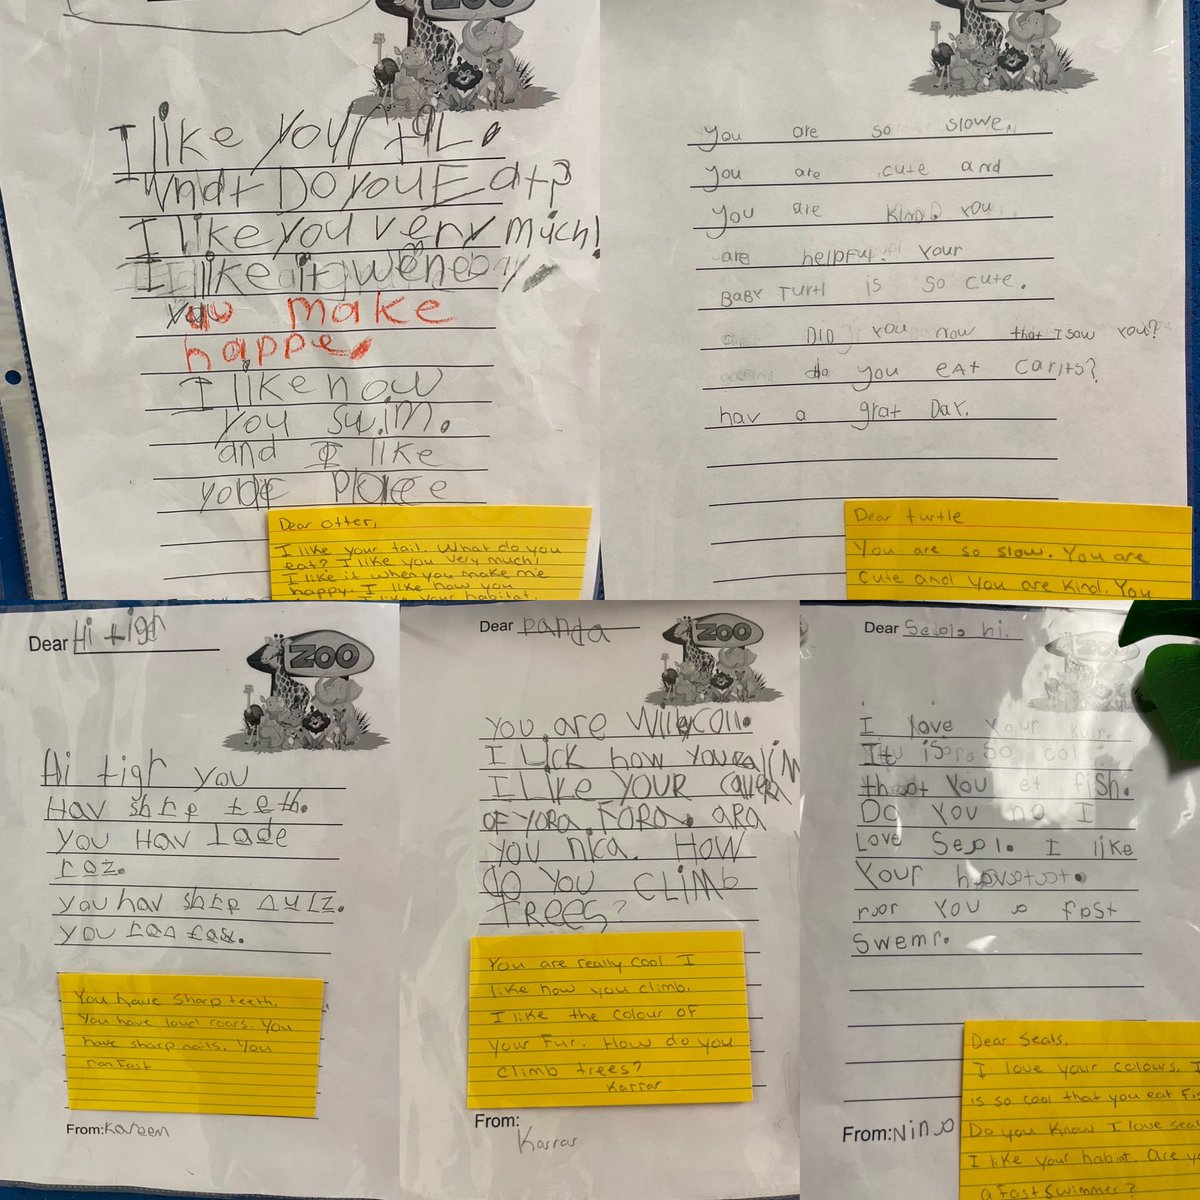 ZOO
I like your tal.
What Do you Eat?
I like you very much!
I like it wene
you make
happe.
I like how
you swim.
and I like
your place
Dear otter,
I like your tail. What do you
eat? I like you very much!
I like it when you make me
happy. I like how you
I like your habitat.
ZOO
you are so slowe.
you are cute and
you are KinD. you
are helpful. your
BaBY Turtl is so cute.
DiD you now that I saw you?
do you eat carits?
hav a grat Day.
Dear turtle
You are so slow. You are
cute and you are kind. You
Dear Hi tigr
ZOO
Hi tigr you
Hav shrp teth.
you Hav lade
roz.
you hav shrp nulz.
you ran fas.
You have sharp teeth.
You have loud roars. You
have sharp nails. You
ran fast
From: Kareem
Dear panda
ZOO
you are coll.
I Lick how you calim
I like YOUR
OF YORA FORA. ARA
you nica. How
do you CLIMb
TREES?
You are really cool. I
like how you climb.
I like the colour of
your fur. How do you
climb trees?
Karrar
From:
Karrar
Dear hi.
ZOO
I love your
It is so col
that you et fish.
Do you no I
Love Seol. I like
Your
you a fast
swemr.
Dear Seals,
I love your colours. I
is so cool that you eat fis
Do you know I love seal
I like your habiat. Are yo
a fast swimmer?
From: